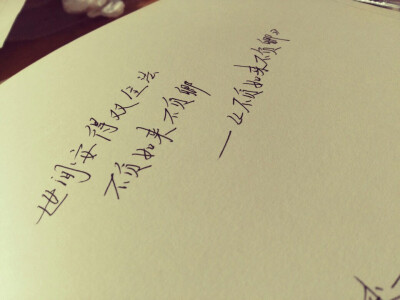 世间安得双全法
不负如来不负卿
—《不负如来不负卿》